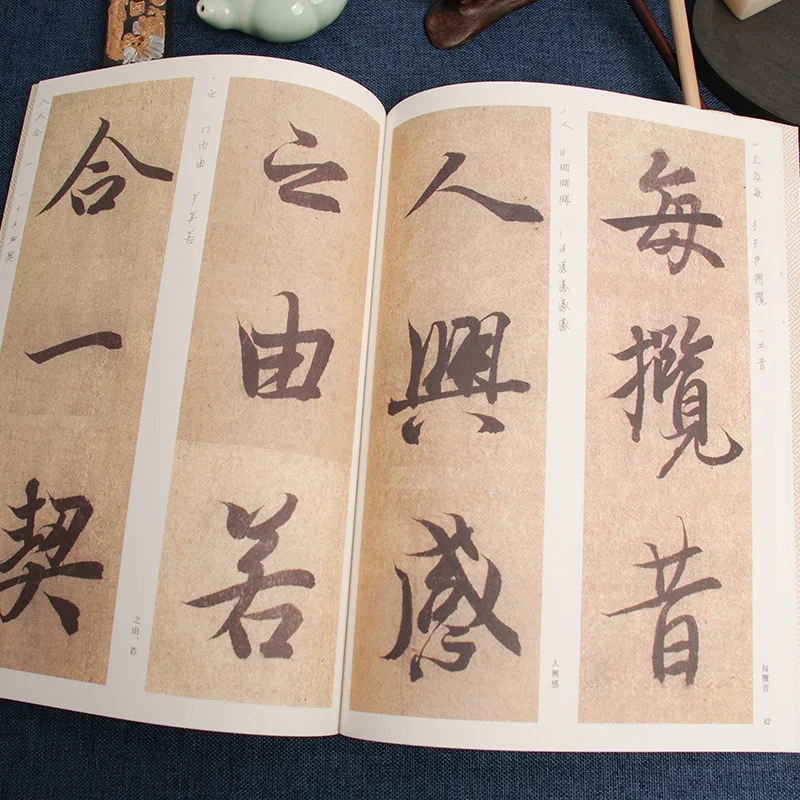 每攬昔
每攬昔
42
人興感
人興感
之由若
之由、若
合一契